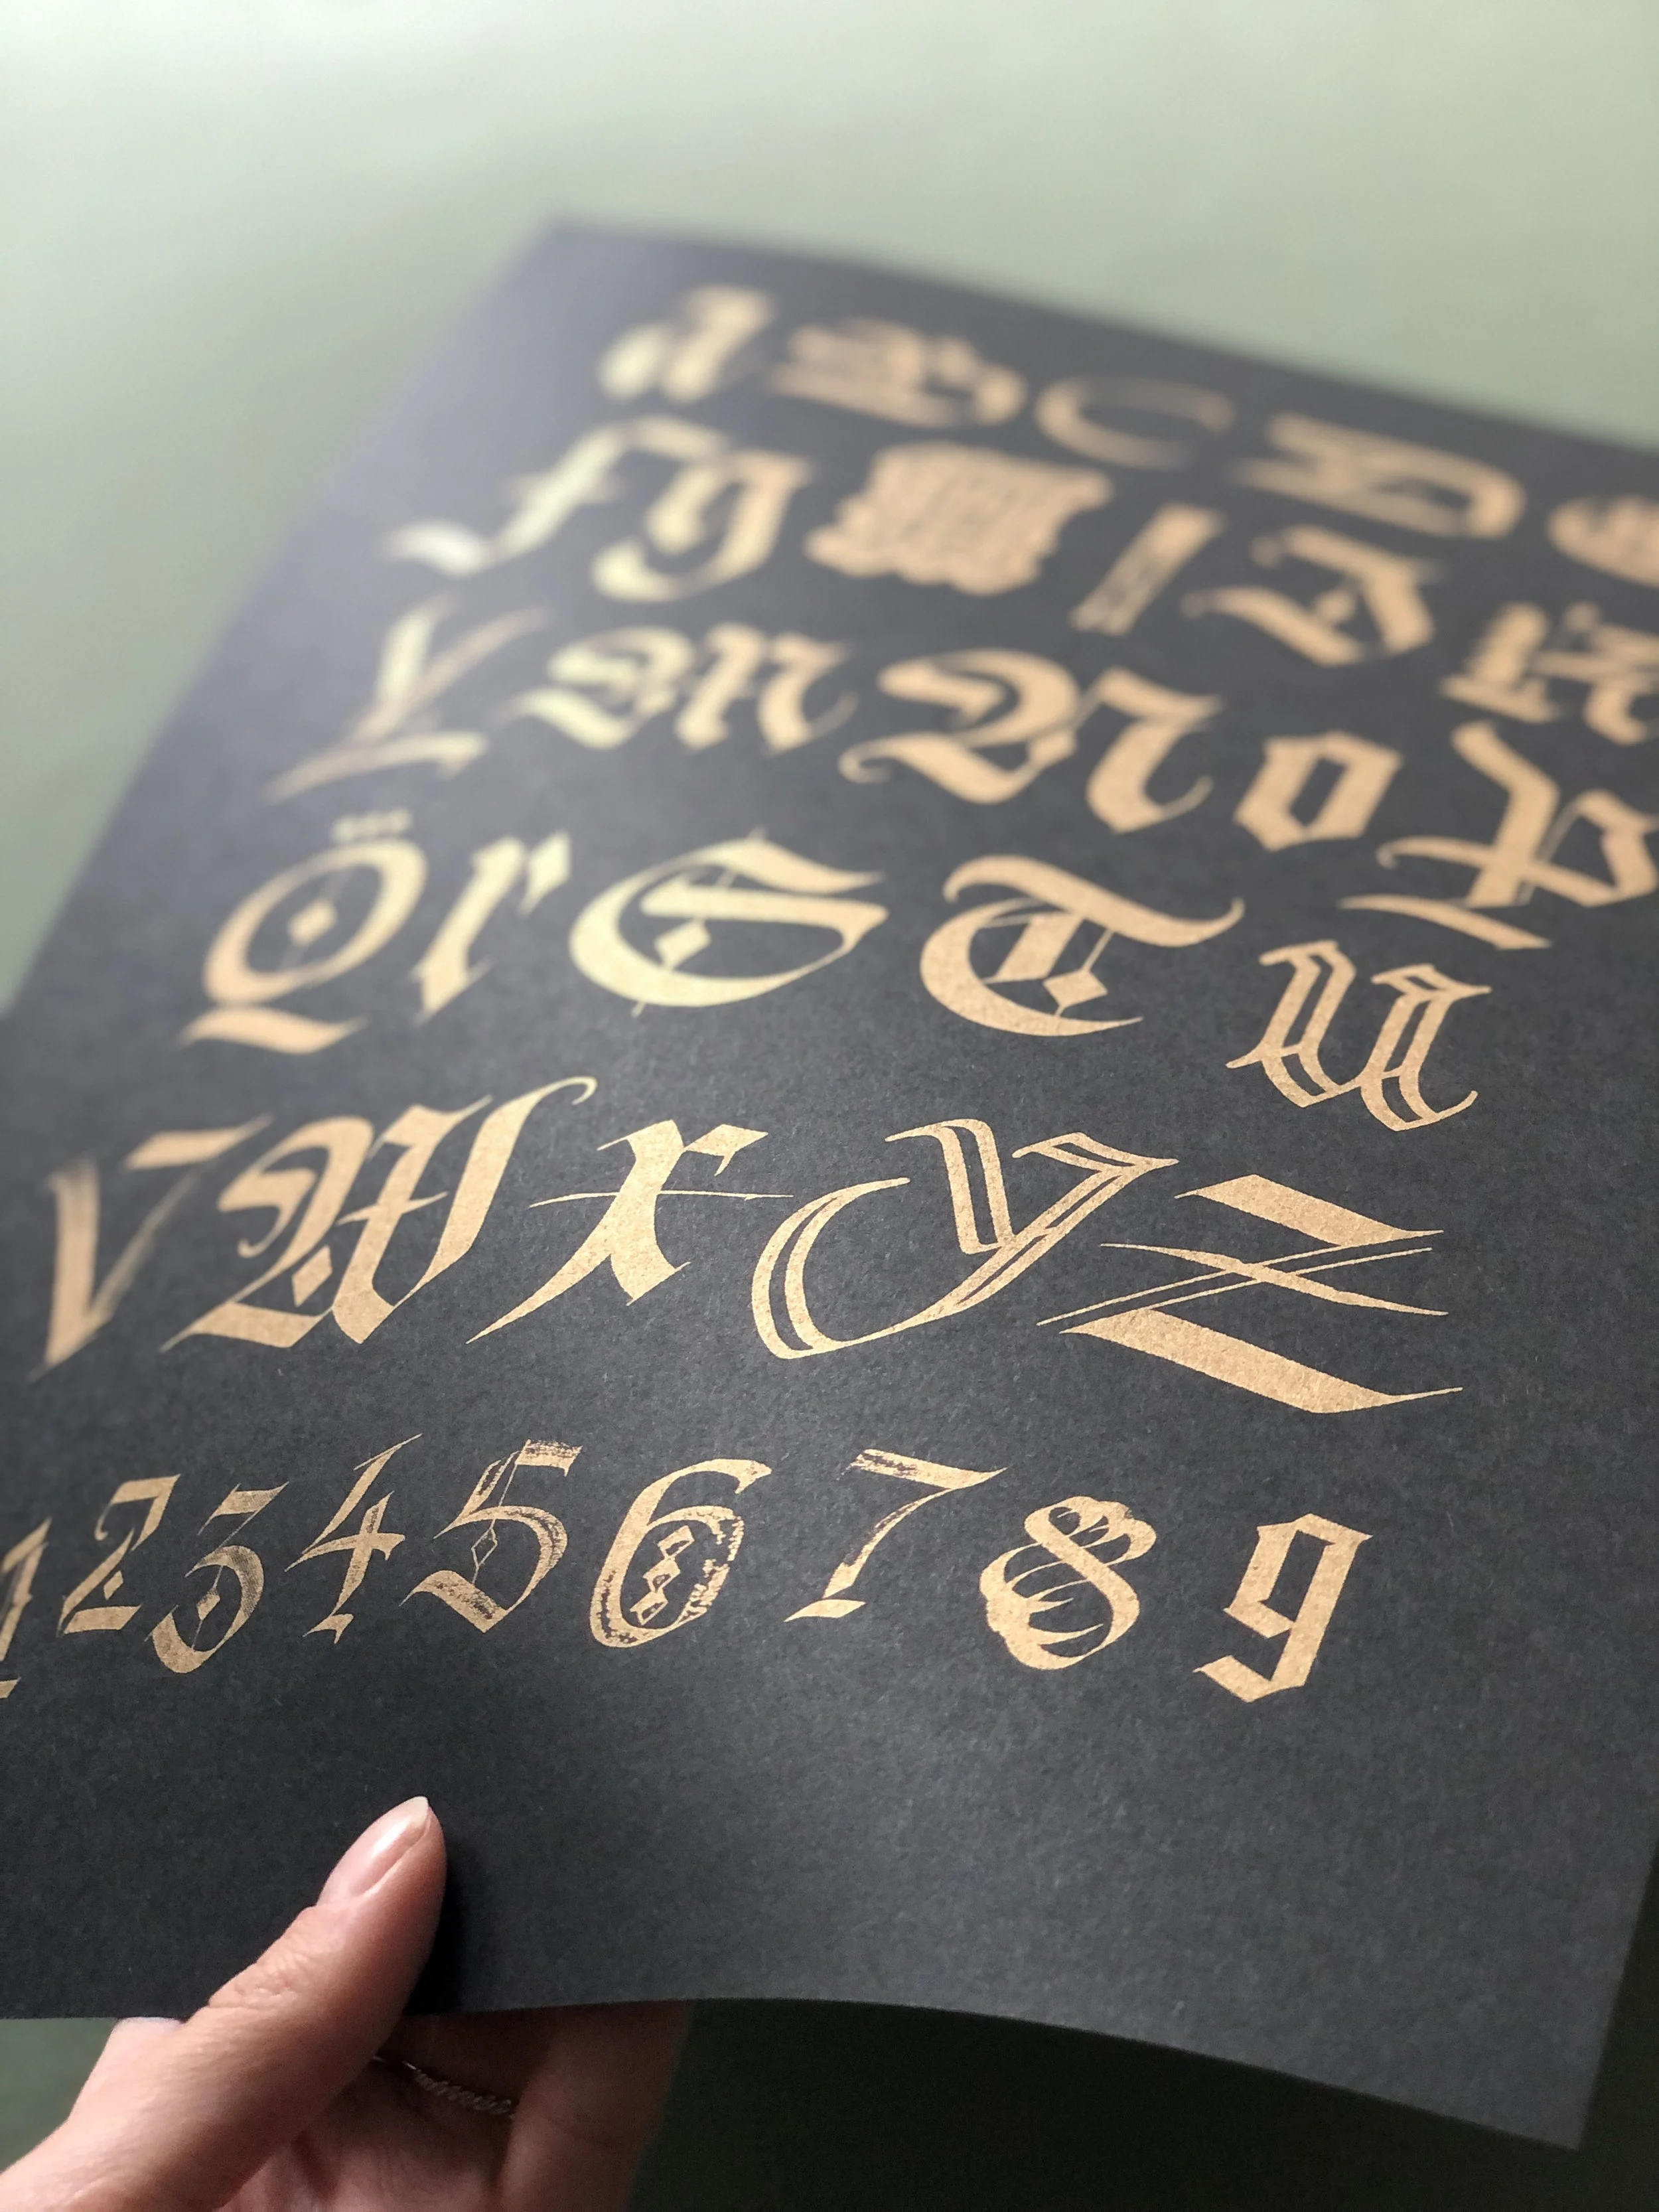 a B C D e
f g H I J K
L M N o P
Q r S T u
V W x Y Z
1 2 3 4 5 6 7 8 9